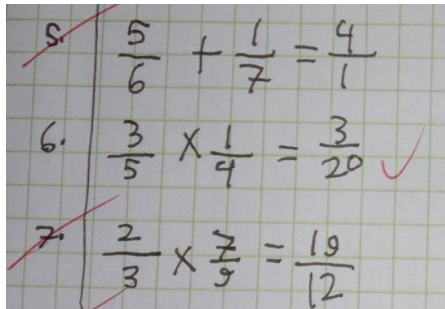 5. 5/6 + 1/7 = 4/1
6. 3/5 × 1/4 = 3/20
7. 2/3 × 7/9 = 19/12